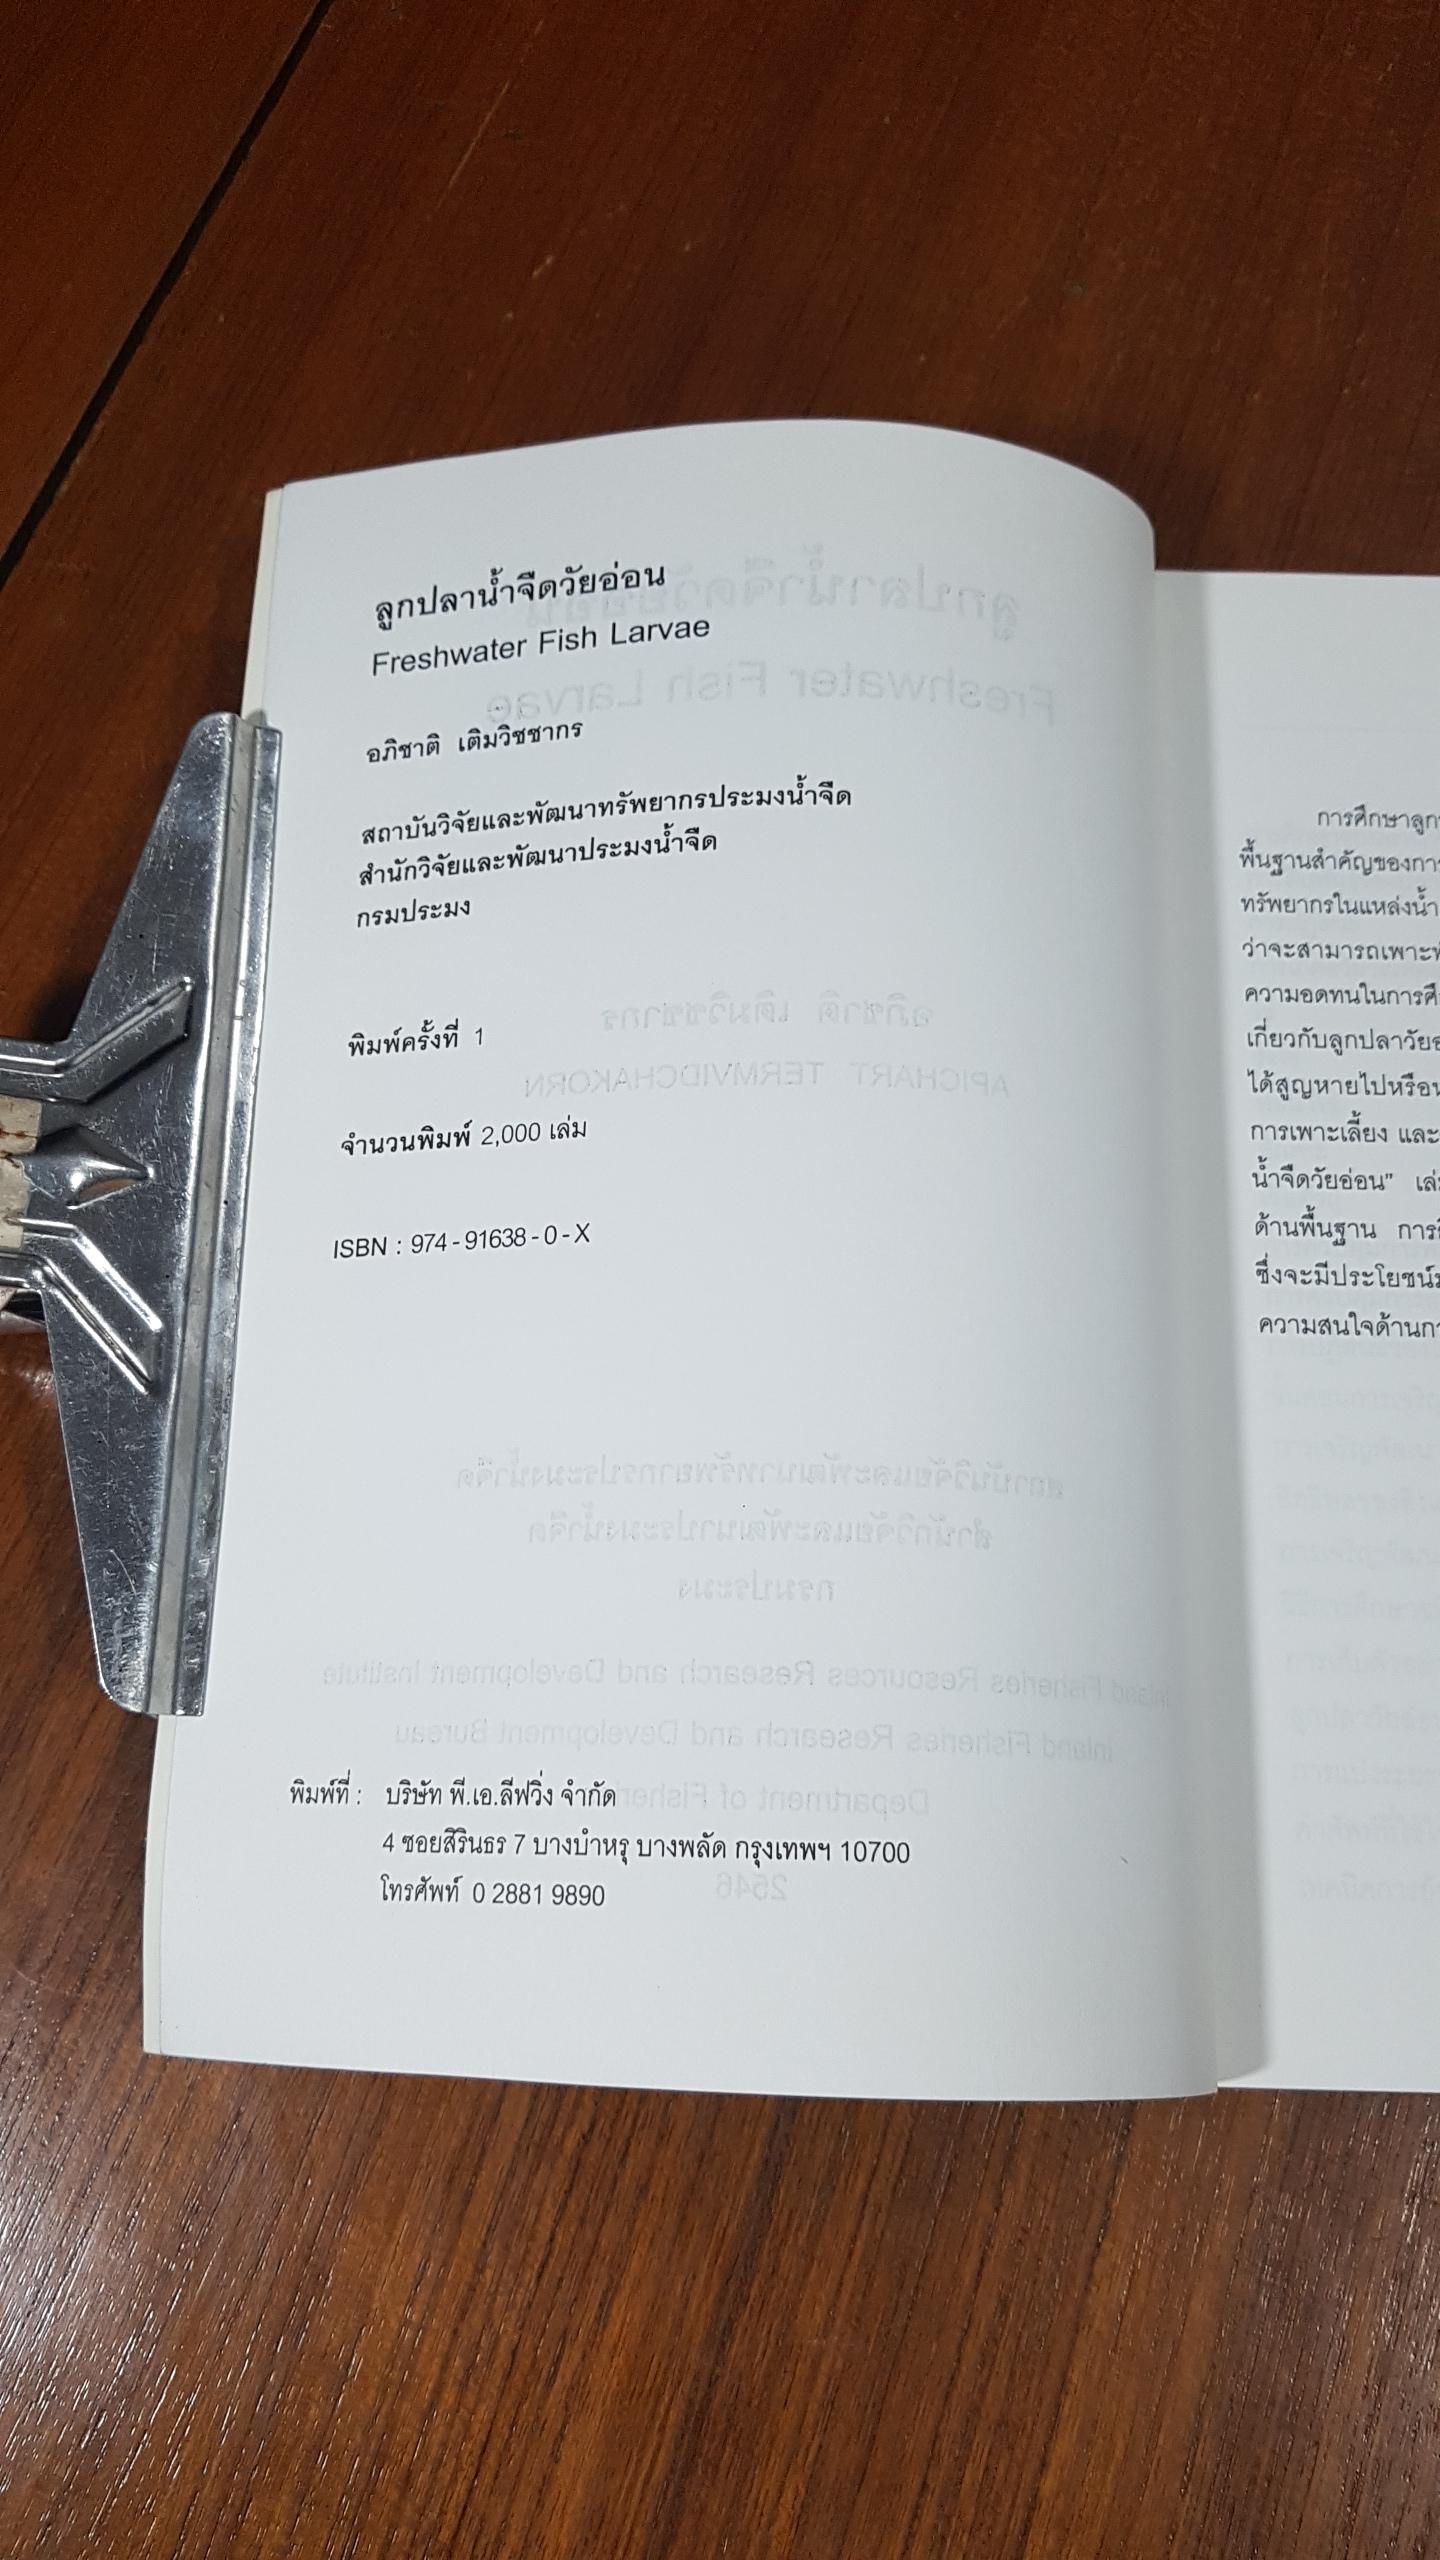 ลูกปลาน้ำจืดวัยอ่อน
Freshwater Fish Larvae
อภิชาติ เติมวิชชากร
สถาบันวิจัยและพัฒนาทรัพยากรประมงน้ำจืด
สำนักวิจัยและพัฒนาประมงน้ำจืด
กรมประมง
พิมพ์ครั้งที่ 1
จำนวนพิมพ์ 2,000 เล่ม
ISBN : 974-91638-0-X
พิมพ์ที่ : บริษัท พี.เอ.ลีฟวิ่ง จำกัด
4 ซอยสิรินธร 7 บางบำหรุ บางพลัด กรุงเทพฯ 10700
โทรศัพท์ 0 2881 9890
การศึกษาลูก
พื้นฐานสำคัญของการ
ทรัพยากรในแหล่งน้ำ
ว่าจะสามารถเพาะ
ความอดทนในการ
เกี่ยวกับลูกปลาวัย
ได้สูญหายไปหรือ
การเพาะเลี้ยง และ
น้ำจืดวัยอ่อน"
ด้านพื้นฐาน
ซึ่งจะมีประโยชน์
ความสนใจด้าน